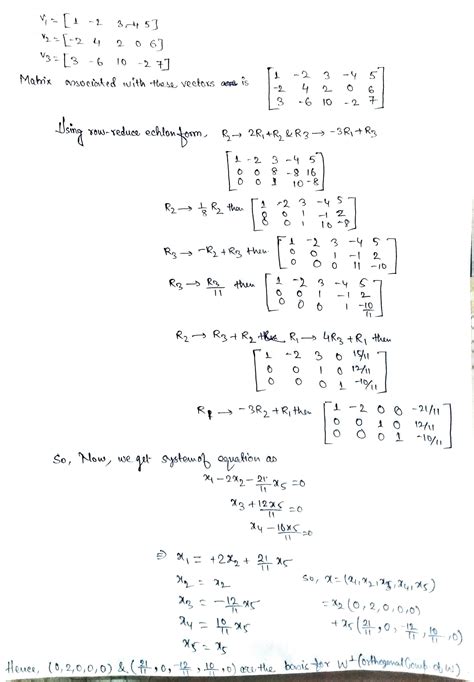 V₁ = [1 -2 3 -4 5]
V₂ = [-2 4 2 0 6]
V₃ = [3 -6 10 -2 7]
Matrix associated with these vectors is [1 -2 3 -4 5
-2 4 2 0 6
3 -6 10 -2 7]
Using row-reduce echlon form, R₂ → 2R₁+R₂ & R₃ → -3R₁+R₃
[1 -2 3 -4 5
0 0 8 -8 16
0 0 1 10 -8]
R₂ → 1/8 R₂ then [1 -2 3 -4 5
0 0 1 -1 2
0 0 1 10 -8]
R₃ → -R₂+R₃ then [1 -2 3 -4 5
0 0 1 -1 2
0 0 0 11 -10]
R₃ → R₃/11 then [1 -2 3 -4 5
0 0 1 -1 2
0 0 0 1 -10/11]
R₂ → R₃+R₂ R₁ → 4R₃+R₁ then
[1 -2 3 0 15/11
0 0 1 0 12/11
0 0 0 1 -10/11]
R₁ → -3R₂+R₁ then [1 -2 0 0 -21/11
0 0 1 0 12/11
0 0 0 1 -10/11]
So, Now, we get system of equation as
x₁-2x₂-21/11 x₅=0
x₃+12x₅/11=0
x₄-10x₅/11=0
⇒ x₁ = +2x₂ + 21/11 x₅
x₂ = x₂ so, x=(x₁,x₂,x₃,x₄,x₅)
x₃ = -12/11 x₅ = x₂(0,2,0,0,0)
x₄ = 10/11 x₅ + x₅(21/11,0,-12/11,10/11,0)
x₅ = x₅
Hence, (0,2,0,0,0) & (21/11,0,-12/11,10/11,0) are the basis for W⊥ (orthogonal of W)